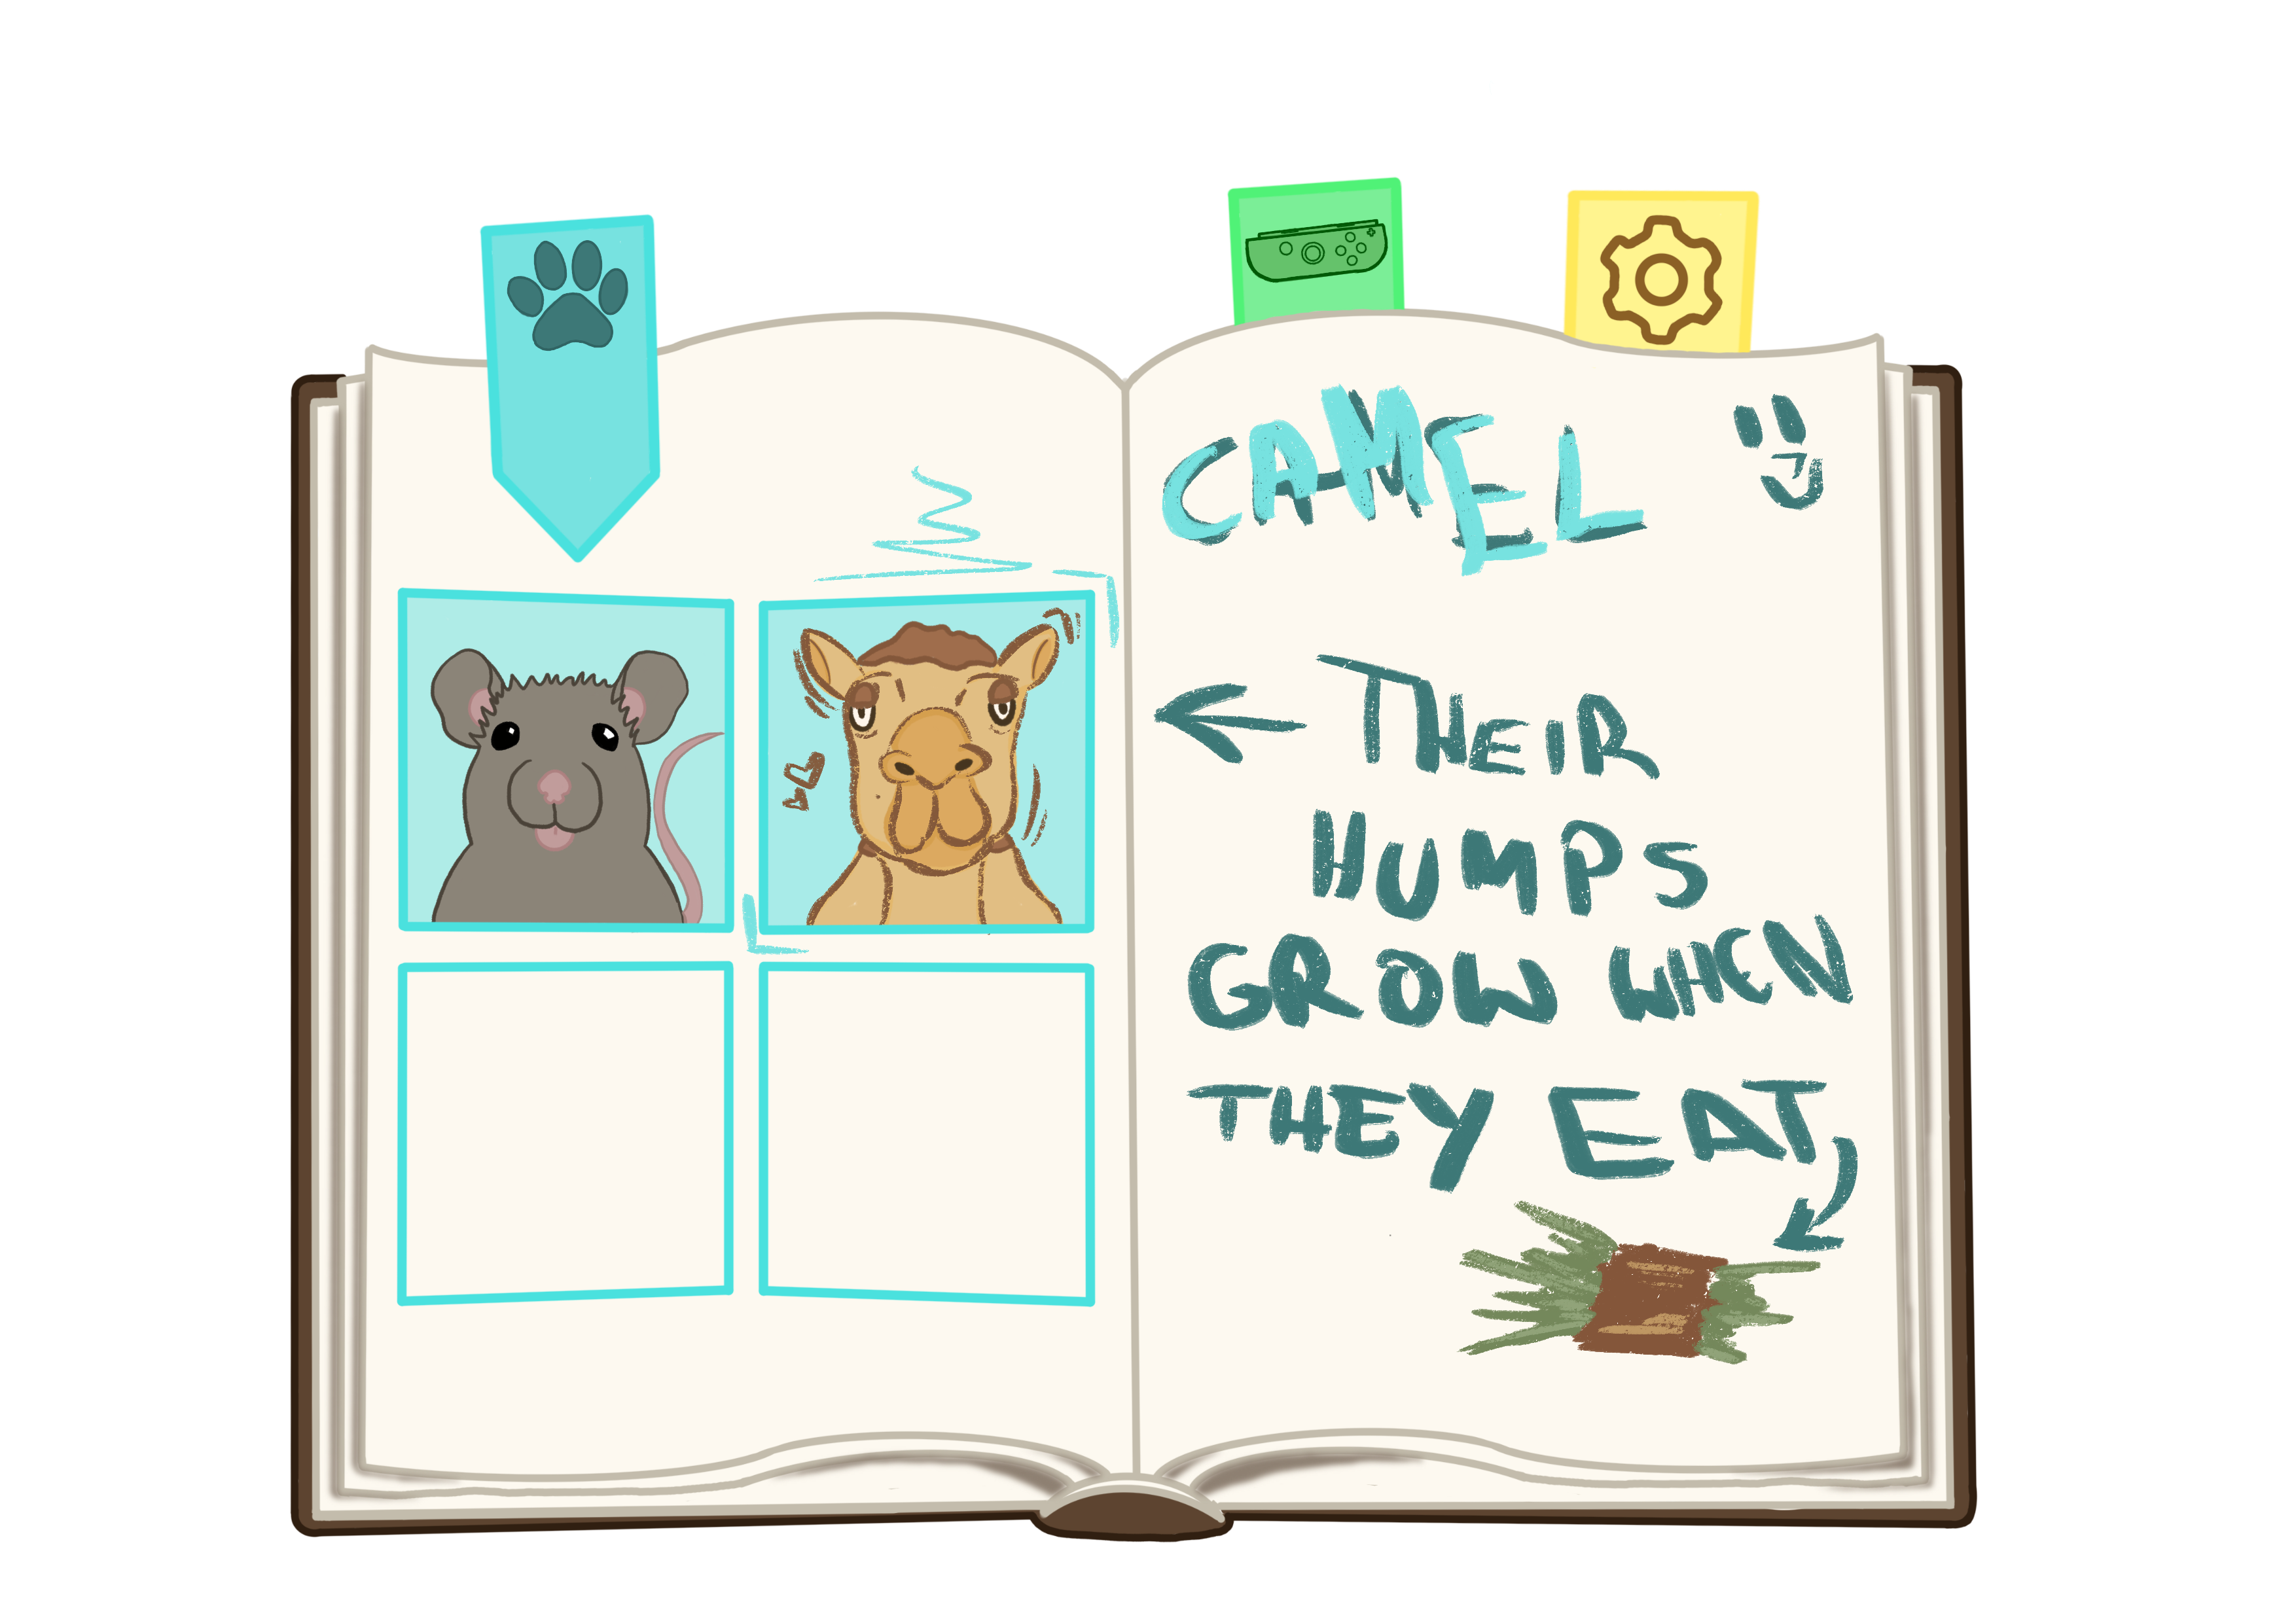 CAMEL
THEIR
HUMPS
GROW WHEN
THEY EAT